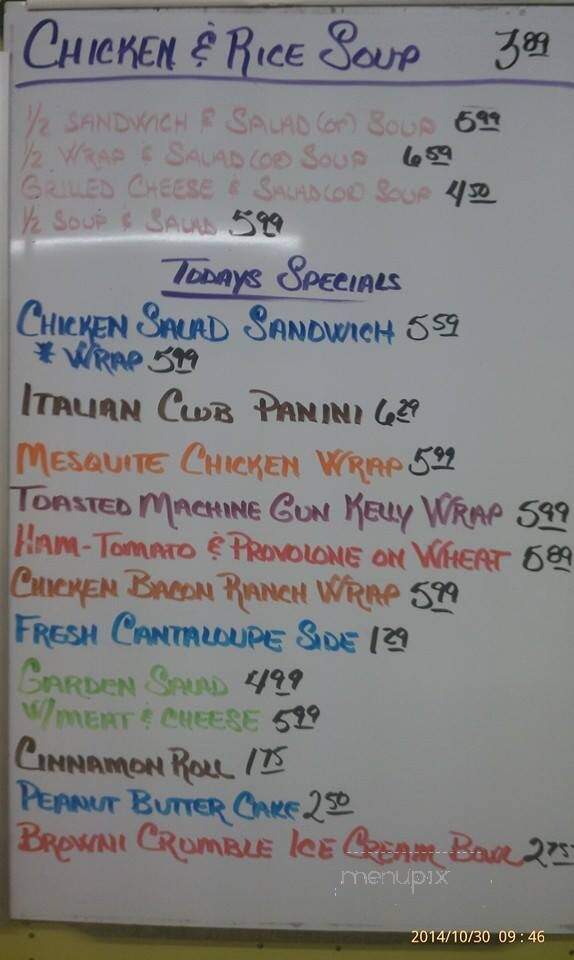 CHICKEN & RICE SOUP 3.89
1/2 SANDWICH & SALAD (or) SOUP 5.99
1/2 WRAP & SALAD (OR) SOUP 6.59
GRILLED CHEESE & SALAD (OR) SOUP 4.50
1/2 SOUP & SALAD 5.99
TODAYS SPECIALS
CHICKEN SALAD SANDWICH 5.59
* WRAP 5.99
ITALIAN CLUB PANINI 6.29
MESQUITE CHICKEN WRAP 5.99
TOASTED MACHINE GUN KELLY WRAP 5.99
HAM-TOMATO & PROVOLONE ON WHEAT 5.89
CHICKEN BACON RANCH WRAP 5.99
FRESH CANTALOUPE SIDE 1.29
GARDEN SALAD 4.99
W/MEAT & CHEESE 5.99
CINNAMON ROLL 1.75
PEANUT BUTTER CAKE 2.50
BROWNI CRUMBLE ICE CREAM BOWL 2.75
menupix
2014/10/30 09:46